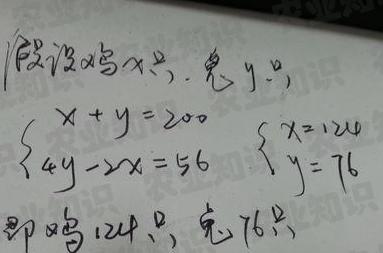 假设鸡x只,兔y只,
x+y=200
4y-2x=56
x=124
y=76
即鸡124只,兔76只,